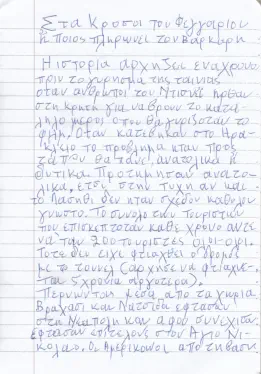 Στα Κροσοι του Φεγγαριου
ή Ποιος πληρώνει τον Βαρκαρη
Η ιστορια αρχιζει ενα χρονο
πριν το γυρησμα της ταινιας
οταν ανθρωποι του Ντισνεϋ ηρθαν
στη κρητη για να βρουν το κατα
ληλο μερος οπου θα γυριζοταν το
φιλμ. Οταν κατεβηκαν στο Ηρα
κλειο το προβλημα ηταν προς
τα που θα πανε ανατολικα ή
δυτικα. Προτημησαν ανατο
λικα, ετσι στην τυχη αν και
το Λασηθι δεν ηταν σχεδον καθολου
γνωστο. Το συνολο των τουριστων
που επισκεπτοταν καθε χρονο αυτε
να ταν 200 τουριστες
Τοτε δεν ειχε φτιαχθει ο δρομος
με το τουνελ (αρχησε να φτιαχνε
ται 5 χρονια αργοτερα).
Περνωντας μεσα απο τα χωρια
Βραχασι και Λατσιδα εφτασαν
στη Νεαπολη και αφου συνεχισαν
εφτασαν επιτελους στον Αγιο Νι
κολαο. Οι Αμερικανοι αποτηβαση